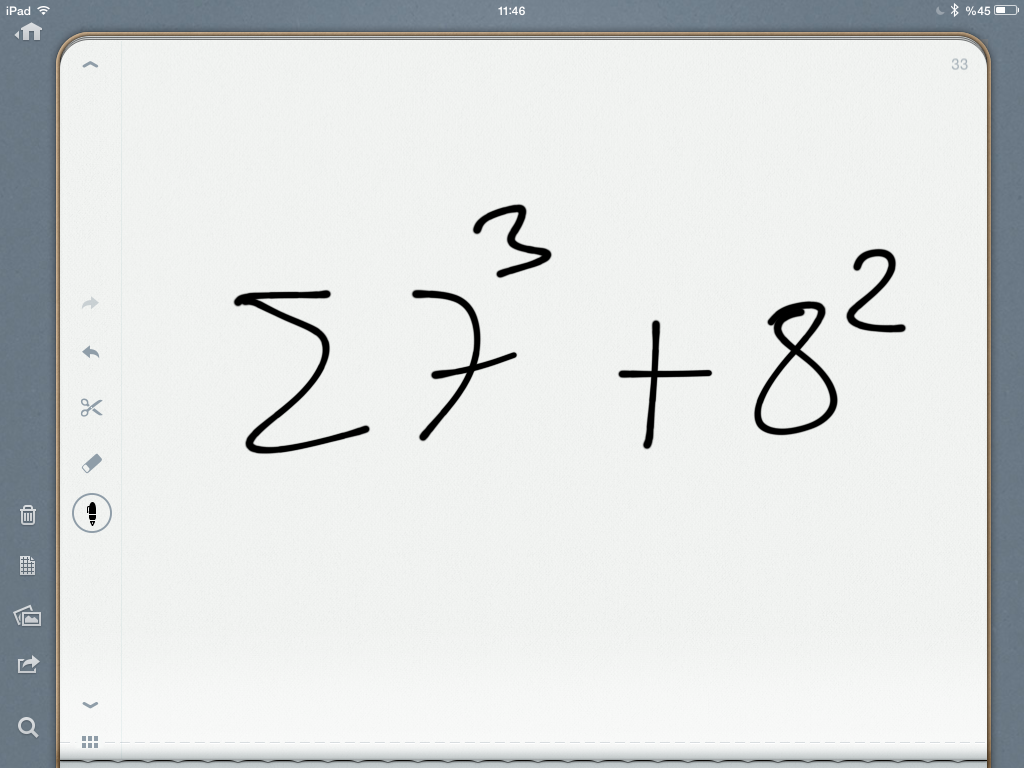 iPad 11:46 %45
33
Σ7³ + 8²